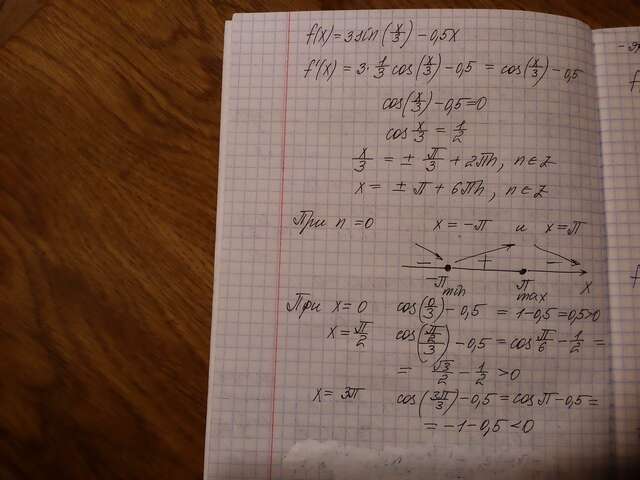 f(x) = 3 sin(x/3) - 0,5x
f'(x) = 3 · 1/3 cos(x/3) - 0,5 = cos(x/3) - 0,5
cos(x/3) - 0,5 = 0
cos x/3 = 1/2
x/3 = ± π/3 + 2πn, n ∈ Z
x = ± π + 6πn, n ∈ Z
При n = 0 x = -π и x = π
- + -
-π π x
min max
При x = 0 cos(0/3) - 0,5 = 1 - 0,5 = 0,5 > 0
x = π/2 cos((π/2)/3) - 0,5 = cos π/6 - 1/2 =
= √3/2 - 1/2 > 0
x = 3π cos(3π/3) - 0,5 = cos π - 0,5 =
= -1 - 0,5 < 0